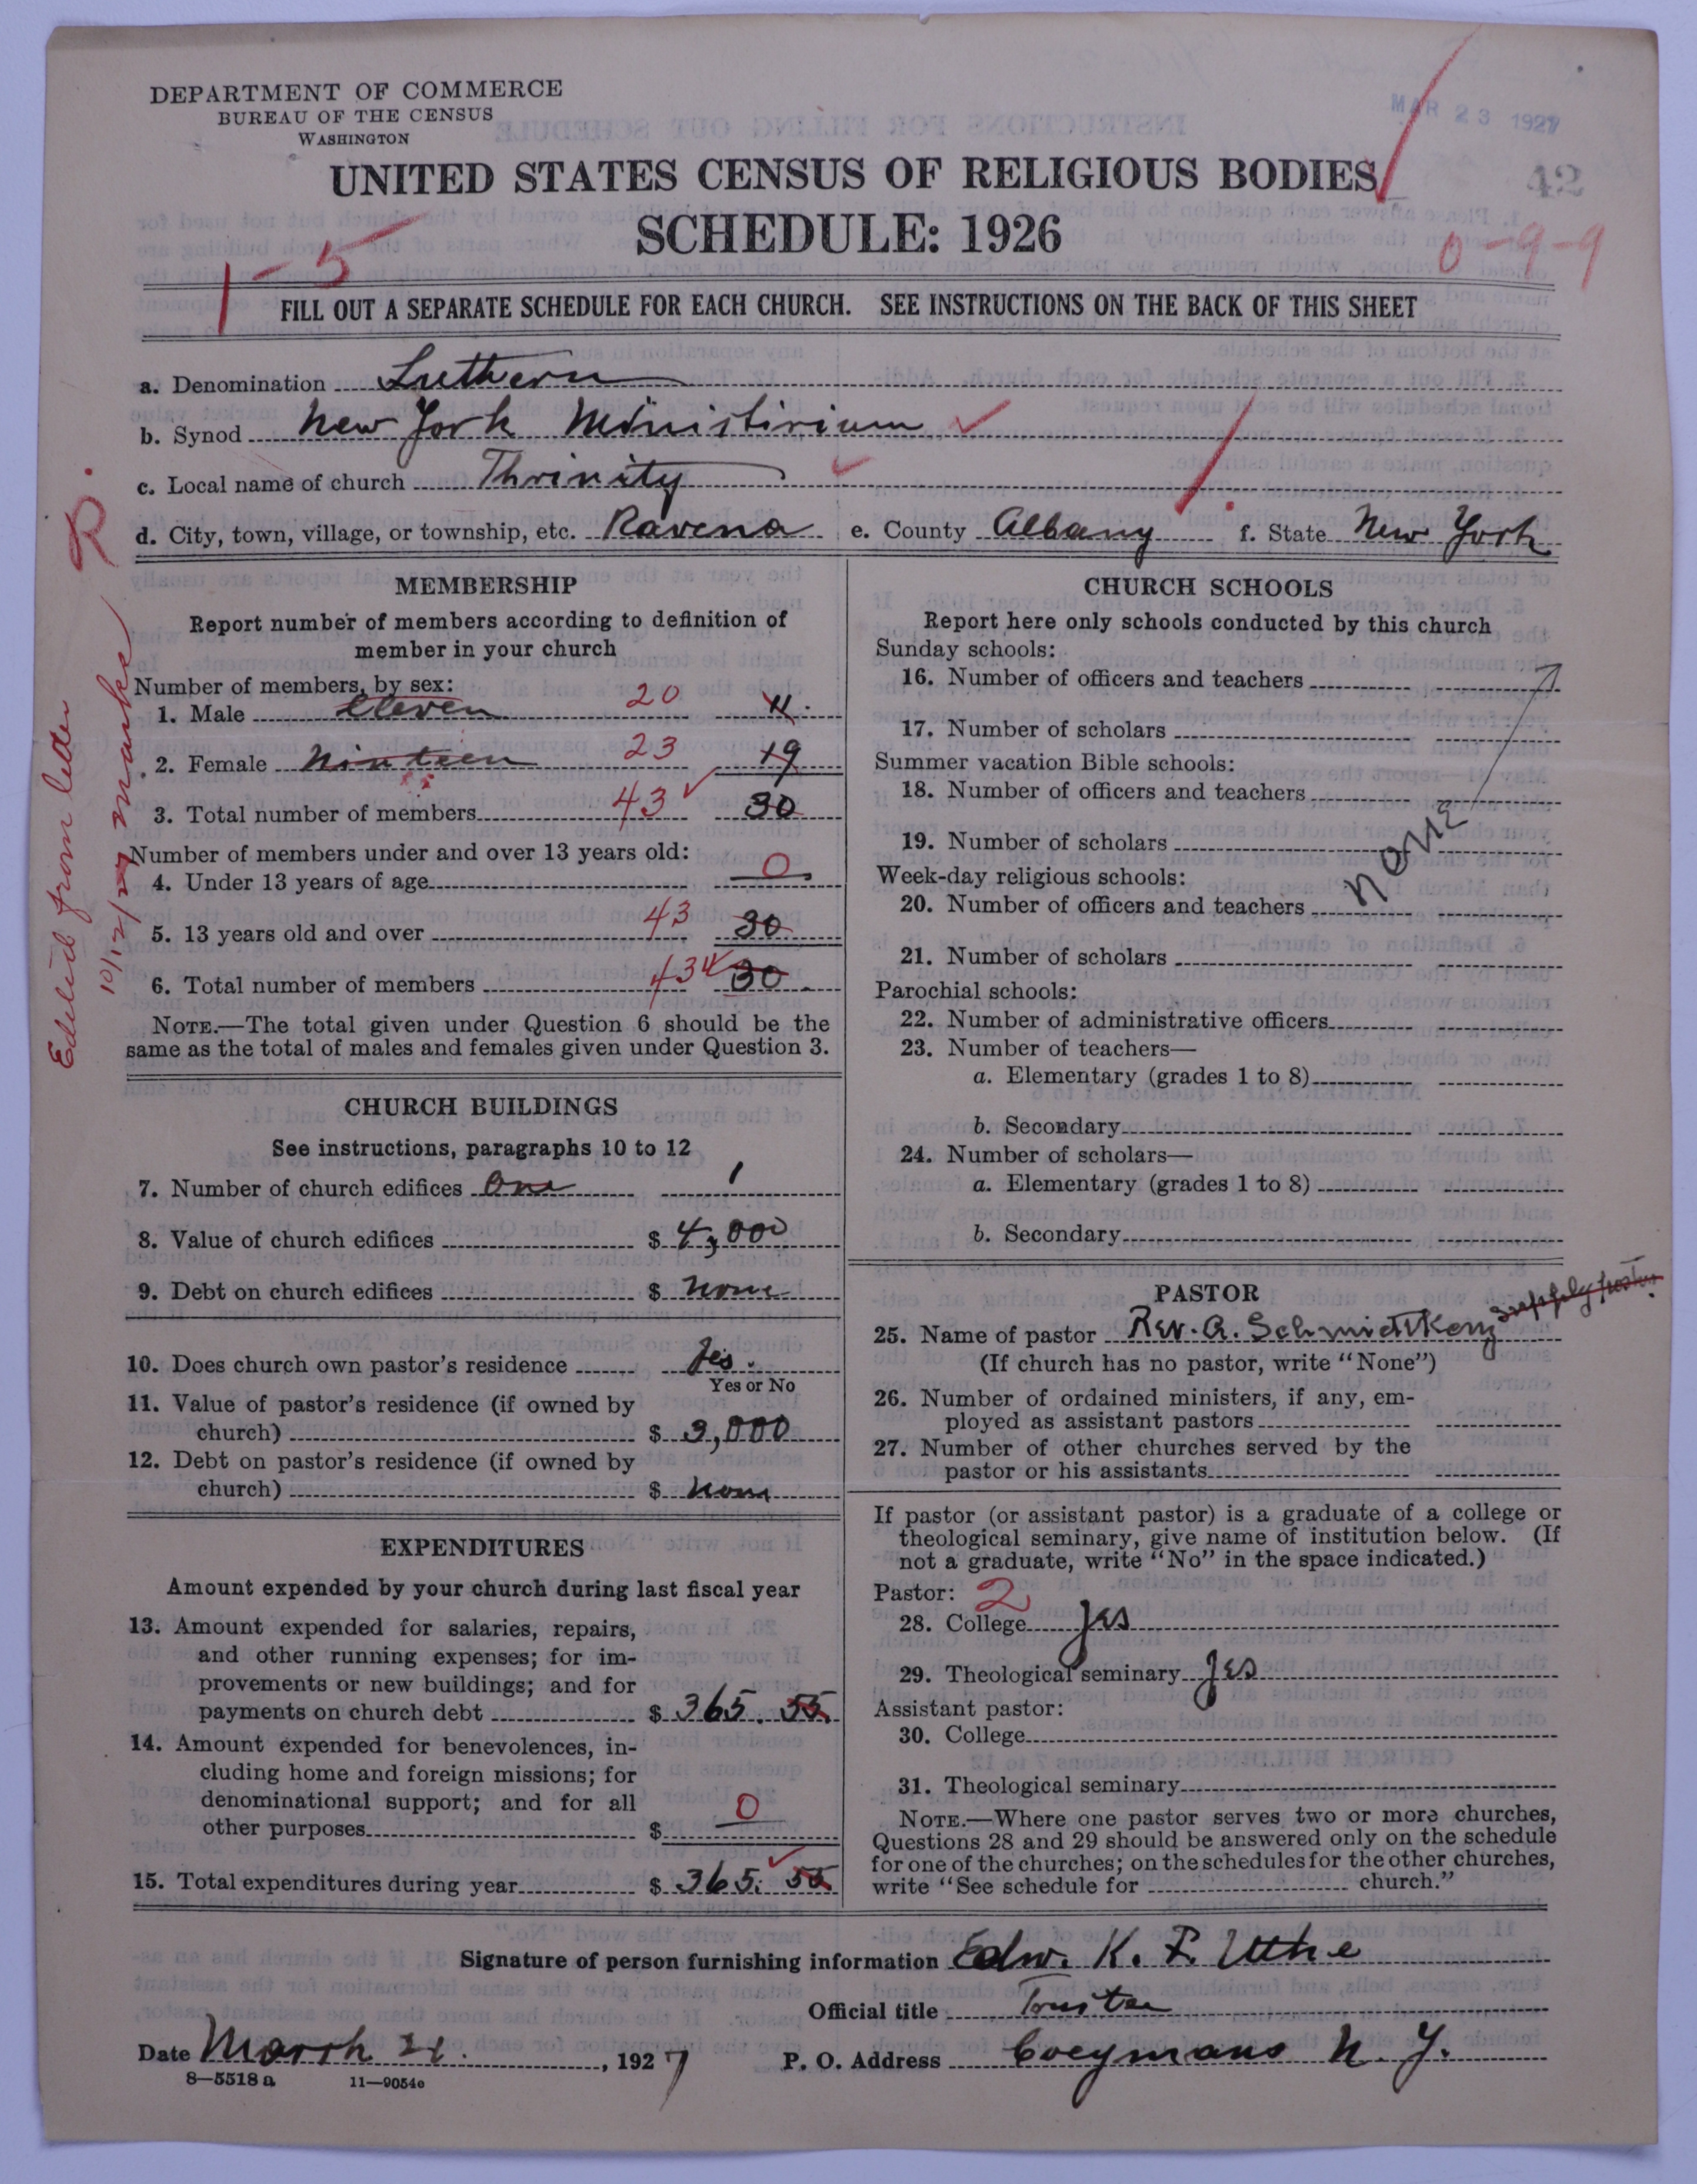 DEPARTMENT OF COMMERCE
BUREAU OF THE CENSUS
WASHINGTON
MAR 23 1927
UNITED STATES CENSUS OF RELIGIOUS BODIES
42
SCHEDULE: 1926
1-5
0-9-9
FILL OUT A SEPARATE SCHEDULE FOR EACH CHURCH. SEE INSTRUCTIONS ON THE BACK OF THIS SHEET
a. Denomination Luthern
b. Synod New York Ministirium
c. Local name of church Thrinity
d. City, town, village, or township, etc. Ravena e. County Albany f. State New York
Edited from letter
10/12/27 R.
MEMBERSHIP
Report number of members according to definition of
member in your church
Number of members, by sex:
1. Male eleven 20 11.
2. Female Ninteen 23 19
3. Total number of members 43 30
Number of members under and over 13 years old:
4. Under 13 years of age 0
5. 13 years old and over 43 30
6. Total number of members 43 30
NOTE.—The total given under Question 6 should be the
same as the total of males and females given under Question 3.
CHURCH BUILDINGS
See instructions, paragraphs 10 to 12
7. Number of church edifices One 1
8. Value of church edifices $ 4,000
9. Debt on church edifices $ None
10. Does church own pastor's residence Yes.
Yes or No
11. Value of pastor's residence (if owned by
church) $ 3,000
12. Debt on pastor's residence (if owned by
church) $ None
EXPENDITURES
Amount expended by your church during last fiscal year
13. Amount expended for salaries, repairs,
and other running expenses; for im-
provements or new buildings; and for
payments on church debt $ 365.55
14. Amount expended for benevolences, in-
cluding home and foreign missions; for
denominational support; and for all
other purposes $ 0
15. Total expenditures during year $ 365.55
CHURCH SCHOOLS
Report here only schools conducted by this church
Sunday schools:
16. Number of officers and teachers
17. Number of scholars
Summer vacation Bible schools:
18. Number of officers and teachers
19. Number of scholars
NONE
Week-day religious schools:
20. Number of officers and teachers
21. Number of scholars
Parochial schools:
22. Number of administrative officers
23. Number of teachers—
a. Elementary (grades 1 to 8)
b. Secondary
24. Number of scholars—
a. Elementary (grades 1 to 8)
b. Secondary
PASTOR
25. Name of pastor Rev. A. Schmidtkeny supply pastor
(If church has no pastor, write "None")
26. Number of ordained ministers, if any, em-
ployed as assistant pastors
27. Number of other churches served by the
pastor or his assistants
If pastor (or assistant pastor) is a graduate of a college or
theological seminary, give name of institution below. (If
not a graduate, write "No" in the space indicated.)
Pastor: 2
28. College Yes
29. Theological seminary Yes
Assistant pastor:
30. College
31. Theological seminary
NOTE.—Where one pastor serves two or more churches,
Questions 28 and 29 should be answered only on the schedule
for one of the churches; on the schedules for the other churches,
write "See schedule for church."
Signature of person furnishing information Edw. K. F. Uthe
Official title Trustee
Date March 21. , 1927 P. O. Address Coeymans N. Y.
8—5518 a 11—9054c